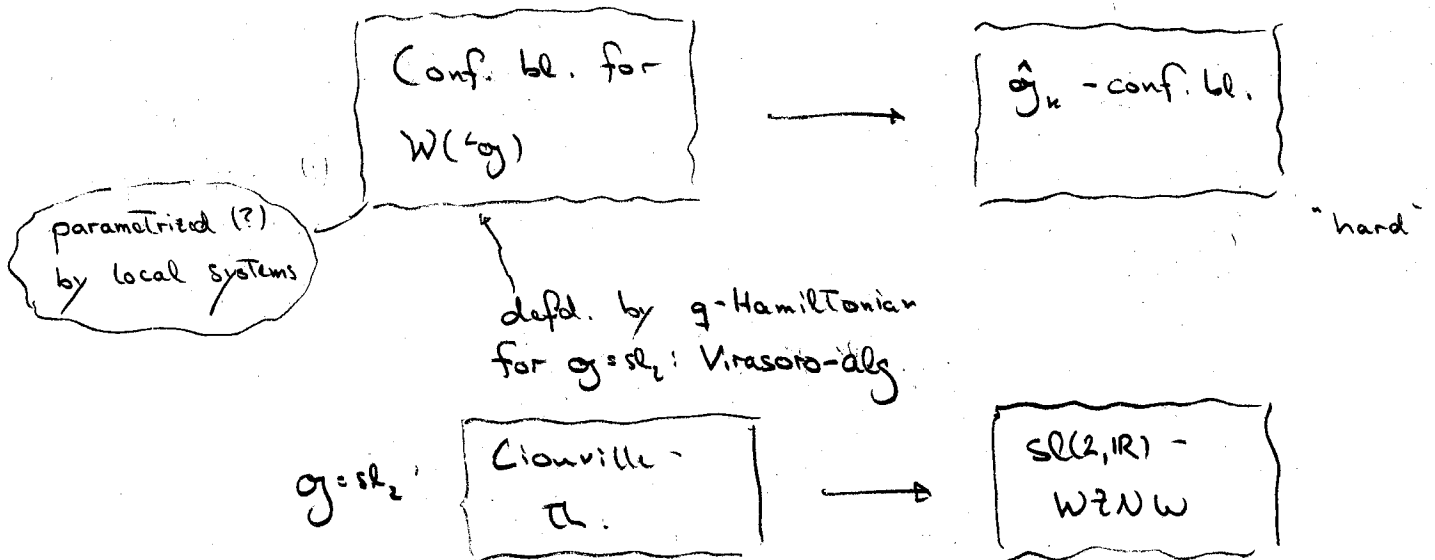 Conf. bl. for
W(ᴸg)
ĝₖ - conf. bl.
parametrized (?)
by local systems
"hard"
defd. by q-Hamiltonian
for g = sl₂ : Virasoro-alg.
g = sl₂ :
Liouville -
Th.
sl(2,ℝ) -
WZNW